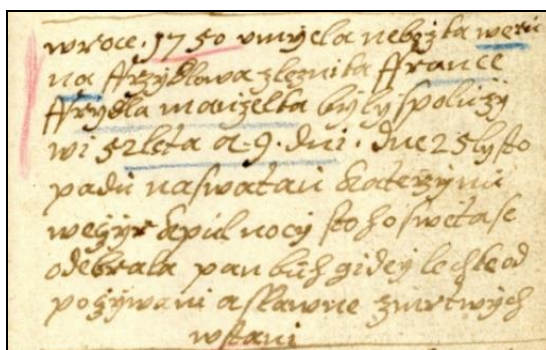 w roce. 1750 vmrzela nebozka weru
na ffrzydlowa zleznika ffrance
ffrydla manzelka byly spoluzy
wi 52 leta a. 9. dni. dne 25 lysto
padu na swatau katerzynu
weczyr k pul nocy sto ho sweta se
odebrala pan buh gi dey lechke od
poczywani a slawne zmrtwych
wstani